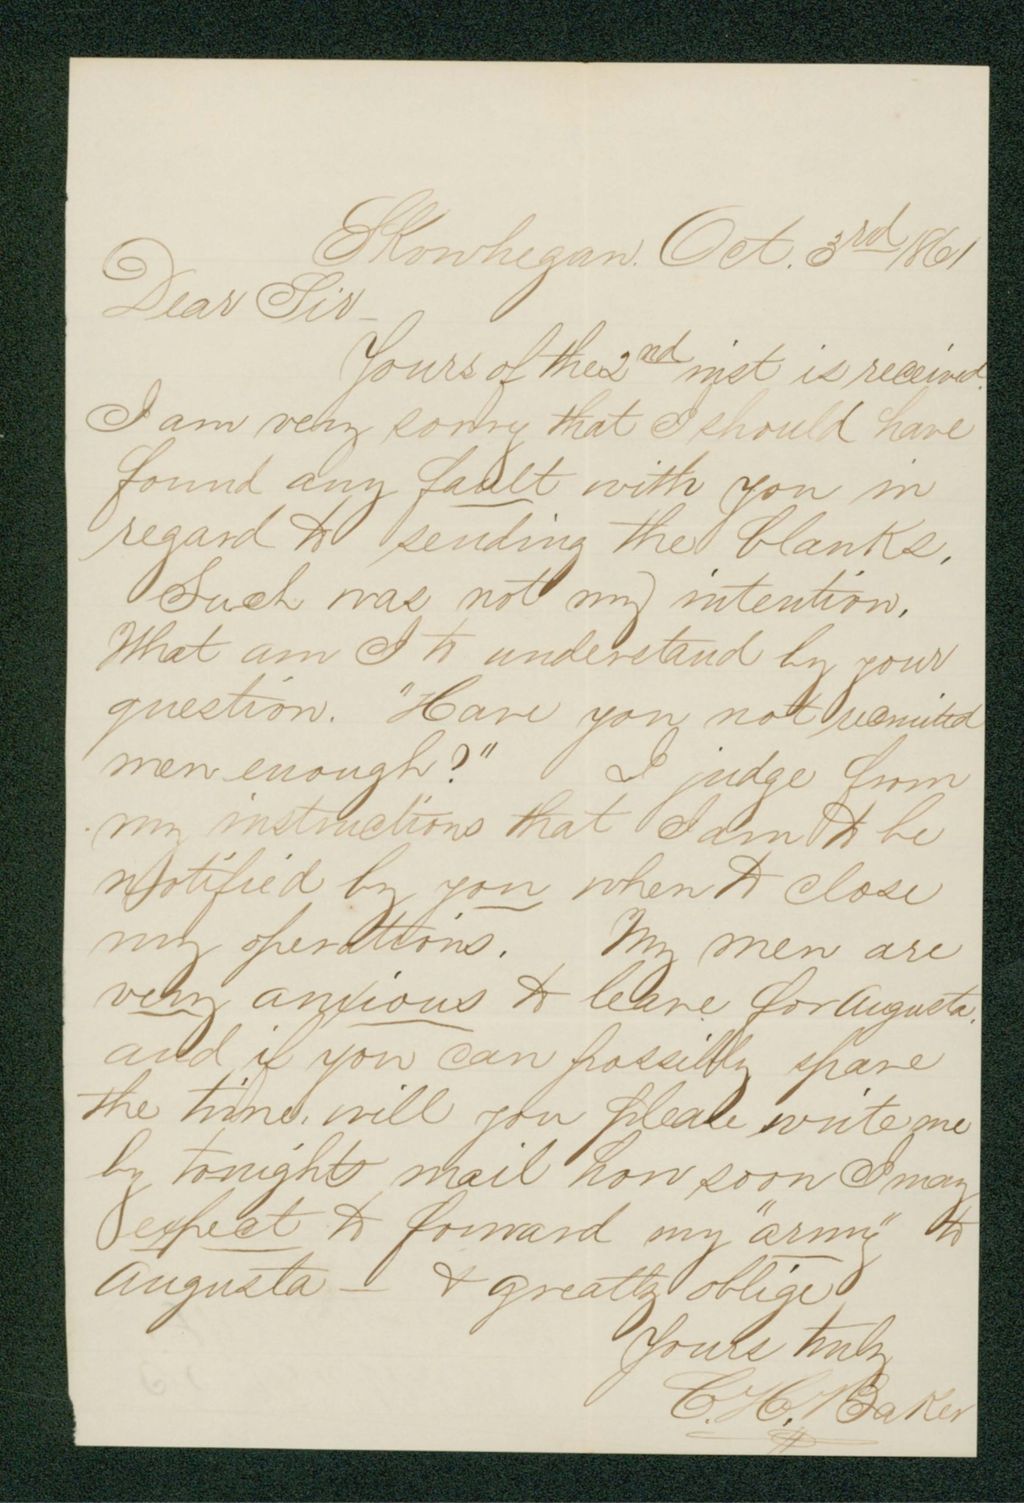 Skowhegan. Oct. 3rd, 1861
Dear Sir –
Yours of the 2nd inst is received.
I am very sorry that I should have
found any fault with you in
regard to sending the blanks.
Such was not my intention.
What am I to understand by your
question. "Have you not recruited
men enough?" I judge from
my instructions that I am to be
notified by you when to close
my operations. My men are
very anxious to leave for Augusta.
and if you can possibly spare
the time, will you please write me
by tonights mail how soon I may
expect to forward my "army" to
Augusta – & greatly oblige
Yours truly
C. H. Baker